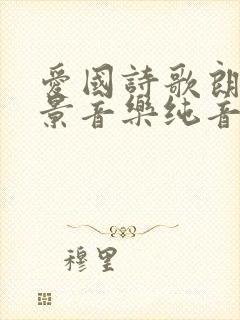 愛國詩歌朗
景音樂纯音
穆里